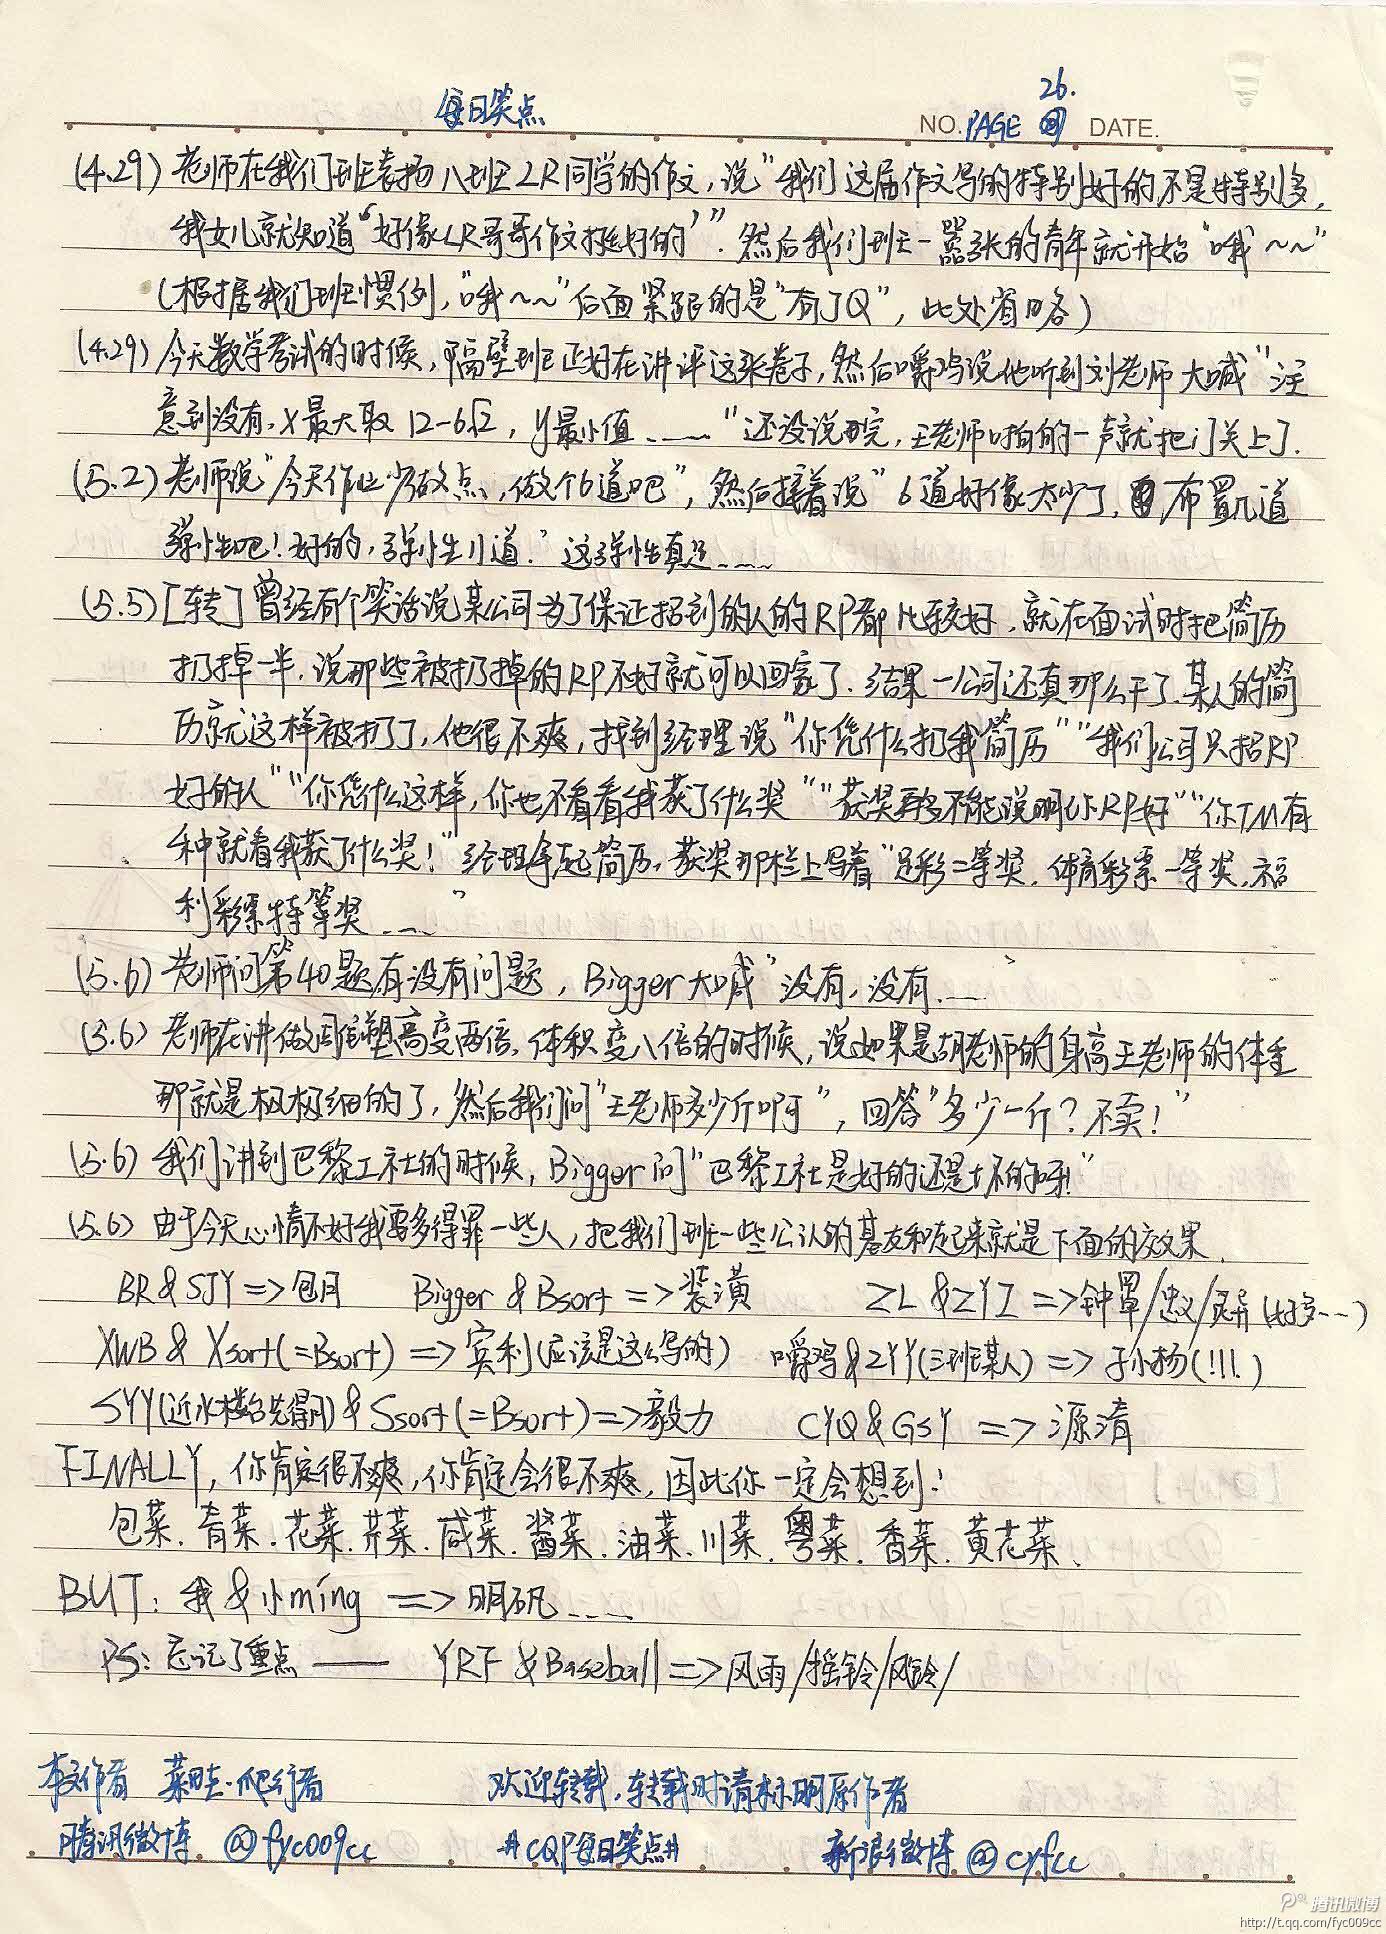 26.
每日笑点
NO. PAGE DATE.
(4.29) 老师在我们班表扬八班LR同学的作文，说"我们这届作文写的特别好的不是特别多，
我女儿就知道'好像LR哥哥作文挺好的'"。然后我们班一嚣张的青年就开始"哦～～"
(根据我们班惯例，"哦～～"后面紧跟的是"有了Q"，此处省略)
(4.29) 今天数学考试的时候，隔壁班正好在讲评这张卷子，然后嚼鸡说他听到刘老师大喊"注
意到没有，x最大取12-6√2，y最小值……"还没说完，王老师啪的一声就把门关上了.
(5.2) 老师说"今天作业少做点，做个6道吧"，然后接着说"6道好像太少了，布置几道
弹性吧！好的，弹性11道."这弹性真足……
(5.5) [转] 曾经有个笑话说某公司为了保证招到的人的RP都比较好，就在面试时把简历
扔掉一半，说那些被扔掉的RP不好就可以回家了.结果一公司还真那么干了.某人的简
历就这样被扔了，他很不爽，找到经理说"你凭什么扔我简历""我们公司只招RP
好的人""你凭什么这样，你也不看看我获了什么奖""获奖再多不能说明你RP好""你TM有
种就看我获了什么奖！"经理拿起简历，获奖那栏上写着"足彩二等奖.体育彩票一等奖.福
利彩票特等奖……"
(5.6) 老师问第40题有没有问题，Bigger大喊"没有，没有……"
(5.6) 老师在讲做雕塑高变两倍，体积变八倍的时候，说如果是胡老师的身高王老师的体重
那就是极极细的了，然后我们问"王老师多少斤啊"，回答"多少一斤？不卖！"
(5.6) 我们讲到巴黎公社的时候，Bigger问"巴黎公社是好的还是坏的呀！"
(5.6) 由于今天心情不好我要多得罪一些人，把我们班一些公认的基友和起来就是下面的效果.
BR & SJY => 包月 Bigger & Bsort => 装潢 ZL & ZYI => 钟罩/忠义/灵异(好多……)
XWB & Xsort(=Bsort) => 宾利(应该是这么写的) 嚼鸡 & ZYY(三班某人) => 于小杨(!!!)
SYY(近水楼台先得月) & Ssort(=Bsort) => 毅力 CYQ & GSY => 源清
FINALLY，你肯定很不爽，你肯定会很不爽，因此你一定会想到：
包菜.青菜.花菜.芹菜.咸菜.酱菜.油菜.川菜.粤菜.香菜.黄花菜.
BUT：我 & 小ming => 明矾……
PS：忘记了重点—— YRF & Baseball => 风雨/摇铃/风铃/
本文作者 菜畦·爬行者 欢迎转载，转载时请标明原作者
腾讯微博 @fyc009cc #CQF每日笑点# 新浪微博 @cyfcc
腾讯微博
http://t.qq.com/fyc009cc